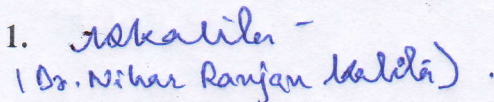 1. NRKalita -
(Dr. Nihar Ranjan Kalita).